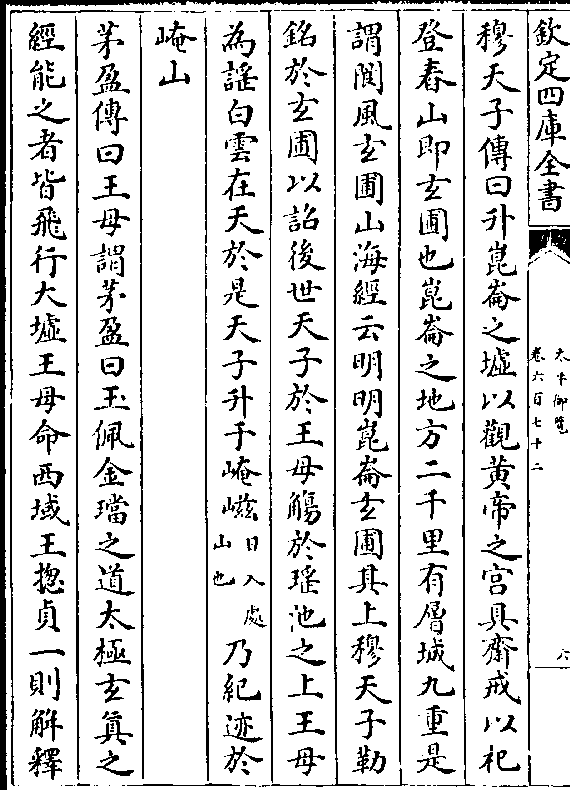 欽定四庫全書
太平御覽
卷六百七十二
八
穆天子傳曰升崑崙之墟以觀黄帝之宫具齋戒以祀
登舂山即玄圃也崑崙之地方二千里有層城九重是
謂閬風玄圃山海經云明明崑崙玄圃其上穆天子勒
銘於玄圃以詔後世天子於王母觴於瑶池之上王母
為謡白雲在天於是天子升于崦嵫日入處山也乃紀迹於
崦山
茅盈傳曰王母謂茅盈曰玉佩金璫之道太極玄真之
經能之者皆飛行大墟王母命西域王揔貞一則解釋